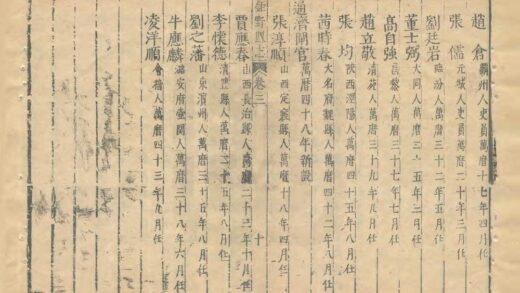 趙倉 霸州人吏員萬曆十七年四月任
張儒 元城人吏員萬曆二十年三月任
劉廷岩 臨汾人萬曆三十二年五月任
董士弼 大同人萬曆三十五年二月任
高自強 昌黎人萬曆三十七年七月任
趙立敬 清苑人萬曆三十九年八月任
張均 陝西涇陽人萬曆四十五年八月任
茜時春 大名府魏縣人萬曆四十二年八月任
通濟閘官 萬曆四十八年新設
張淳順 山西定襄縣人萬曆十八年四月任
卷三 十
賈應春 山西長治縣人萬曆二十三年十月任
李懷德 清豐縣人萬曆二十五年八月任
劉之藩 山東濱州人萬曆三十五年八月任
牛應麟 潞安府壺關人萬曆三十八年六月任
凌洋順 會稽人萬曆四十三年九月任